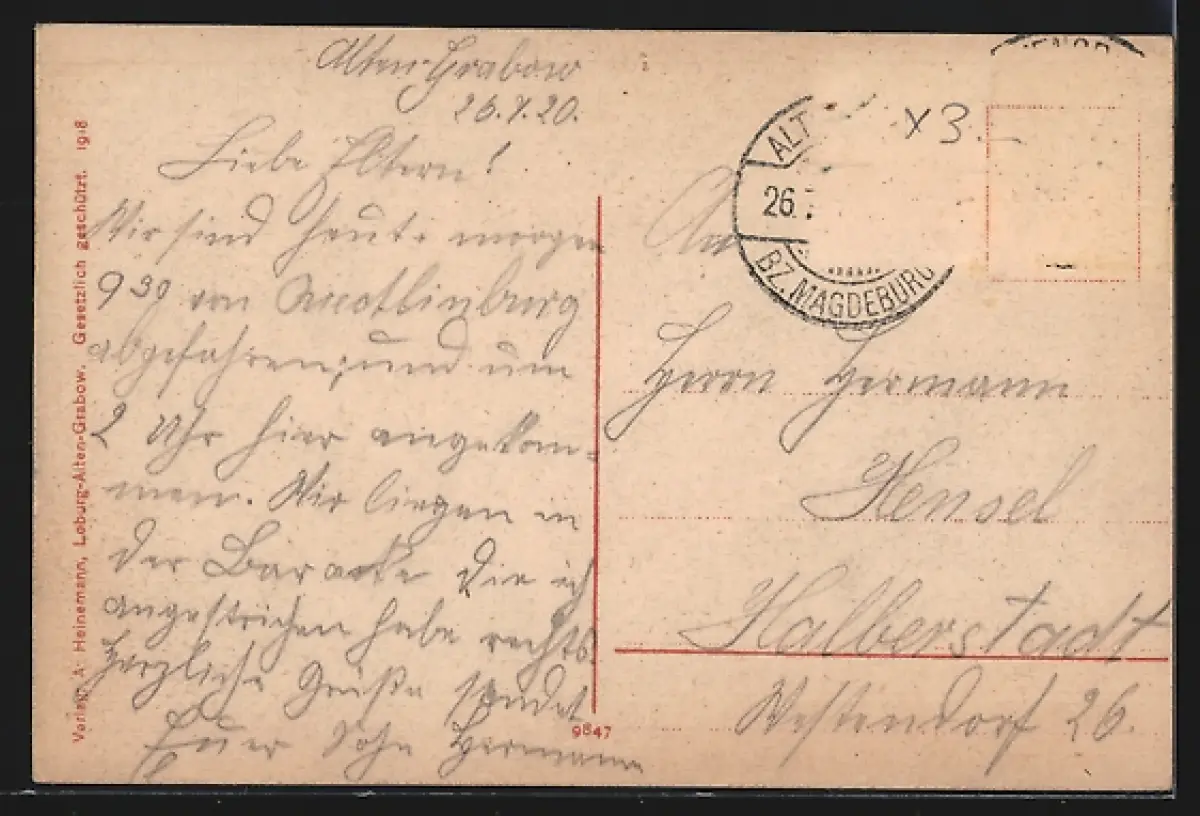 Alten-Grabow
26.7.20.
Liebe Eltern!
Wir sind heute morgen
9 30 von Quedlinburg
abgefahren, und um
2 Uhr hier angekom-
men. Wir liegen in
der Baracke die ich
angestrichen habe rechts.
Herzliche Grüße sendet
Euer Sohn Hermann
Verlag: A. Heinemann, Loburg-Alten-Grabow. Gesetzlich geschützt. 1918
9847
ALT
26.7
BZ. MAGDEBURG
x3
An
Herrn Hermann
Hensel
Halberstadt
Westendorf 26.